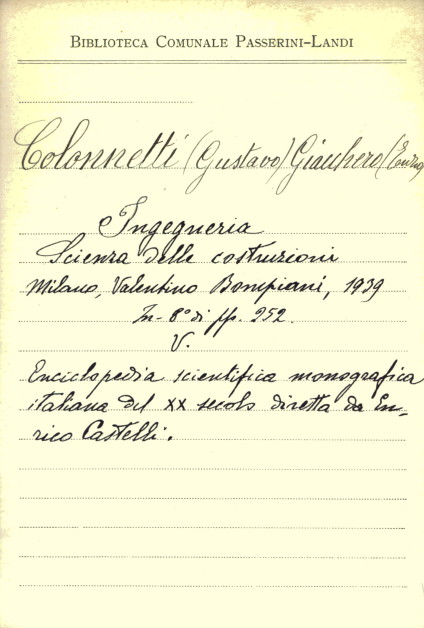 BIBLIOTECA COMUNALE PASSERINI-LANDI
Colonnetti (Gustavo) Giacchero (Enzo)
Ingegneria
Scienza delle costruzioni
Milano, Valentino Bompiani, 1939
In-8° di pp. 252.
V.
Enciclopedia scientifica monografica
italiana del XX secolo diretta da En-
rico Castelli.